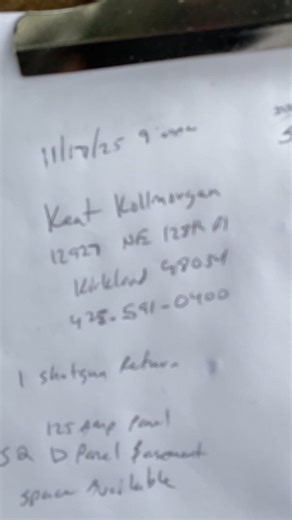 11/17/25 9:00am
Kent Kollmorgan
12927 NE 128th Pl
Kirkland 98034
425-591-0400
1 Shotgun Return
125 Amp Panel
SQ D Panel Basement
Space Available